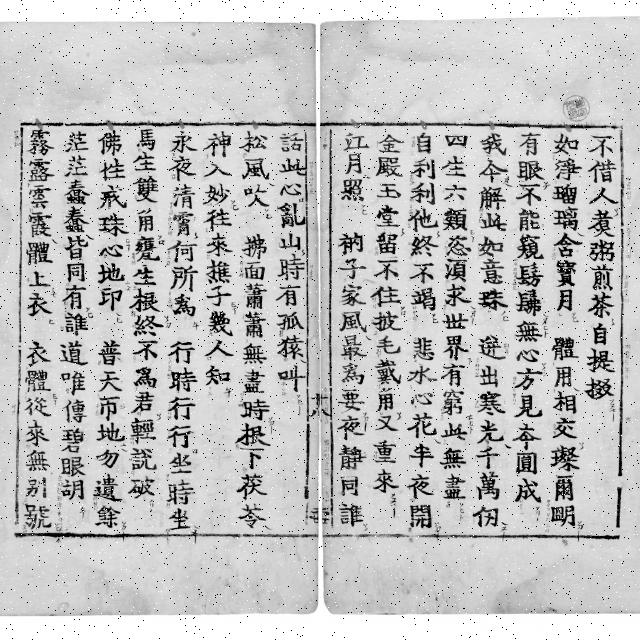 不借人煮粥煎茶自提掇
如淨瑠璃含寶月　體用相交璨爾明
有眼不能窺髣髴無心方見本圓成
我今解此如意珠　迸出寒光千萬份
四生六類恣須求世界有窮此無盡
自利利他終不竭　悲水心花半夜開
金殿玉堂留不住披毛戴角又重來
江月照　衲子家風最爲要夜靜同誰
話此心亂山時有孤猿叫
松風吹　拂面蕭蕭無盡時根下茯苓
神入妙往來樵子幾人知
永夜清霄何所爲　行時行行坐時坐
馬生雙角甕生根終不爲君輕說破
佛性戒珠心地印　普天帀地勿遺餘
茫茫蠢蠢皆同有誰道唯傳碧眼胡
霧露雲霞體上衣　衣體從來無別號
十八